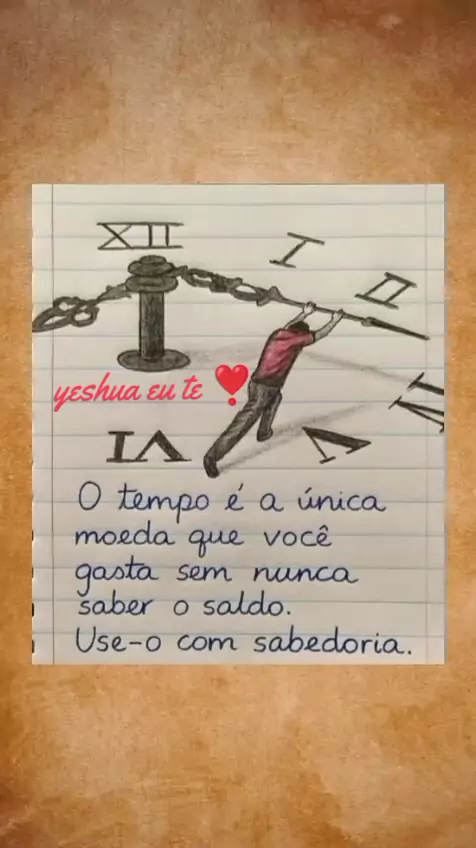 XII
I
II
IV
yeshua eu te ❣️
VI
V
O tempo é a única
moeda que você
gasta sem nunca
saber o saldo.
Use-o com sabedoria.